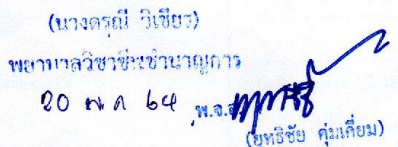 (นางดรุณี วิเชียร)
พยาบาลวิชาชีพชำนาญการ
20 พ.ค 64 พ.จ.อ.
(ยุทธิชัย คุ่มเคี่ยม)